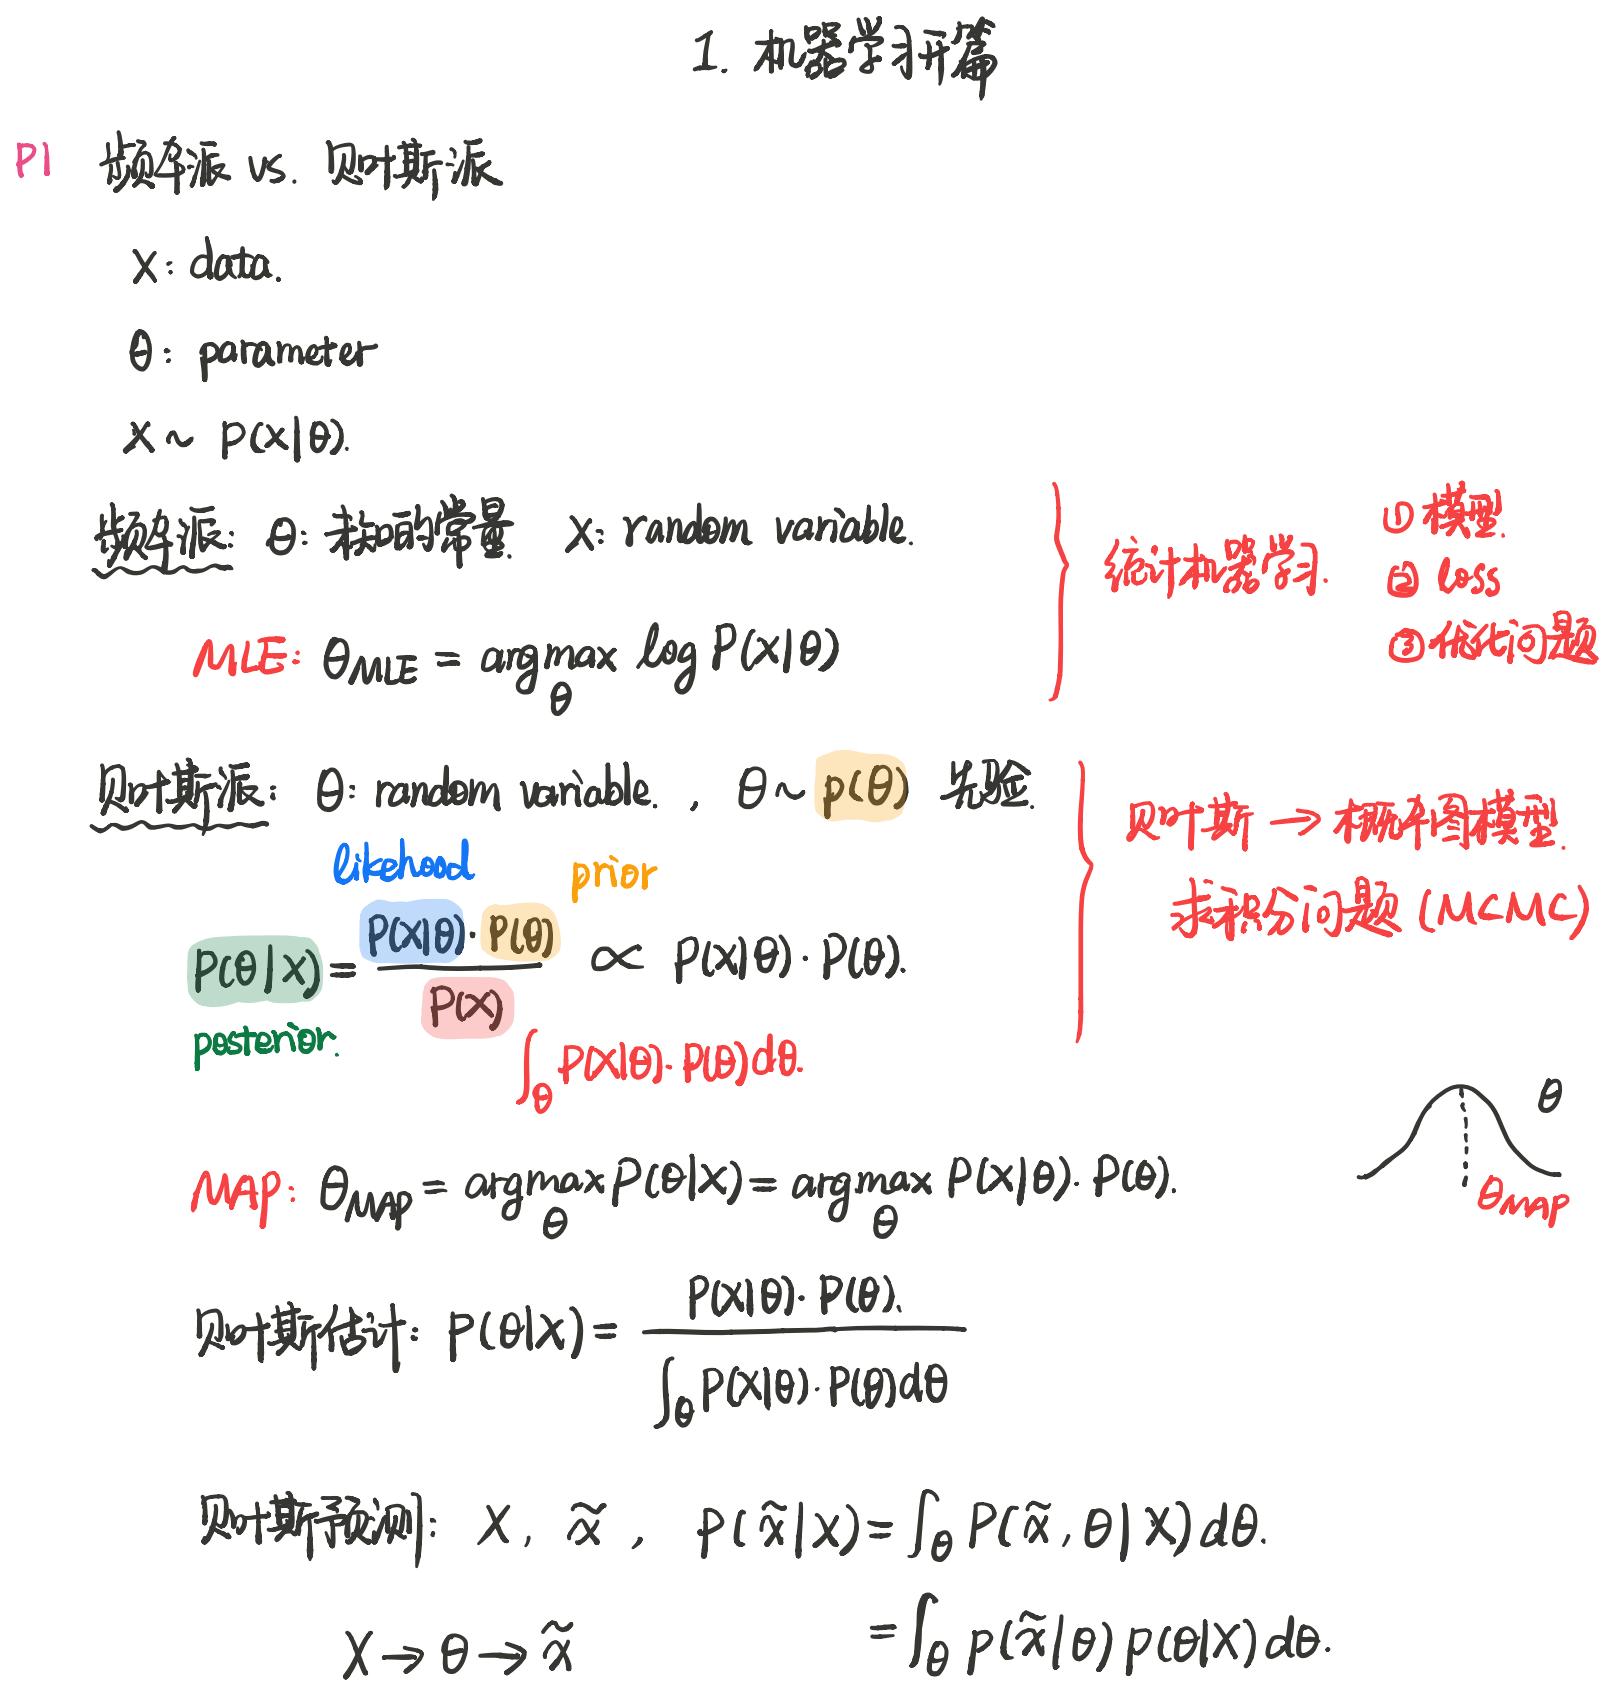 1. 机器学习开篇
P1 频率派 vs. 贝叶斯派
X: data.
θ: parameter
X ~ P(X|θ).
频率派: θ: 未知的常量. X: random variable.
MLE: θ_MLE = argmax_θ log P(X|θ)
统计机器学习.
① 模型.
② loss
③ 优化问题
贝叶斯派: θ: random variable. , θ ~ p(θ) 先验.
likehood prior
P(θ|X) = P(X|θ)·P(θ) / P(X) ∝ P(X|θ)·P(θ).
posterior.
∫_θ P(X|θ)·P(θ)dθ.
贝叶斯 → 概率图模型.
求积分问题 (MCMC)
MAP: θ_MAP = argmax_θ P(θ|X) = argmax_θ P(X|θ)·P(θ).
θ
θ_MAP
贝叶斯估计: P(θ|X) = P(X|θ)·P(θ). / ∫_θ P(X|θ)·P(θ)dθ
贝叶斯预测: X, x̃ , P(x̃|X) = ∫_θ P(x̃, θ|X) dθ.
X → θ → x̃ = ∫_θ P(x̃|θ) P(θ|X) dθ.